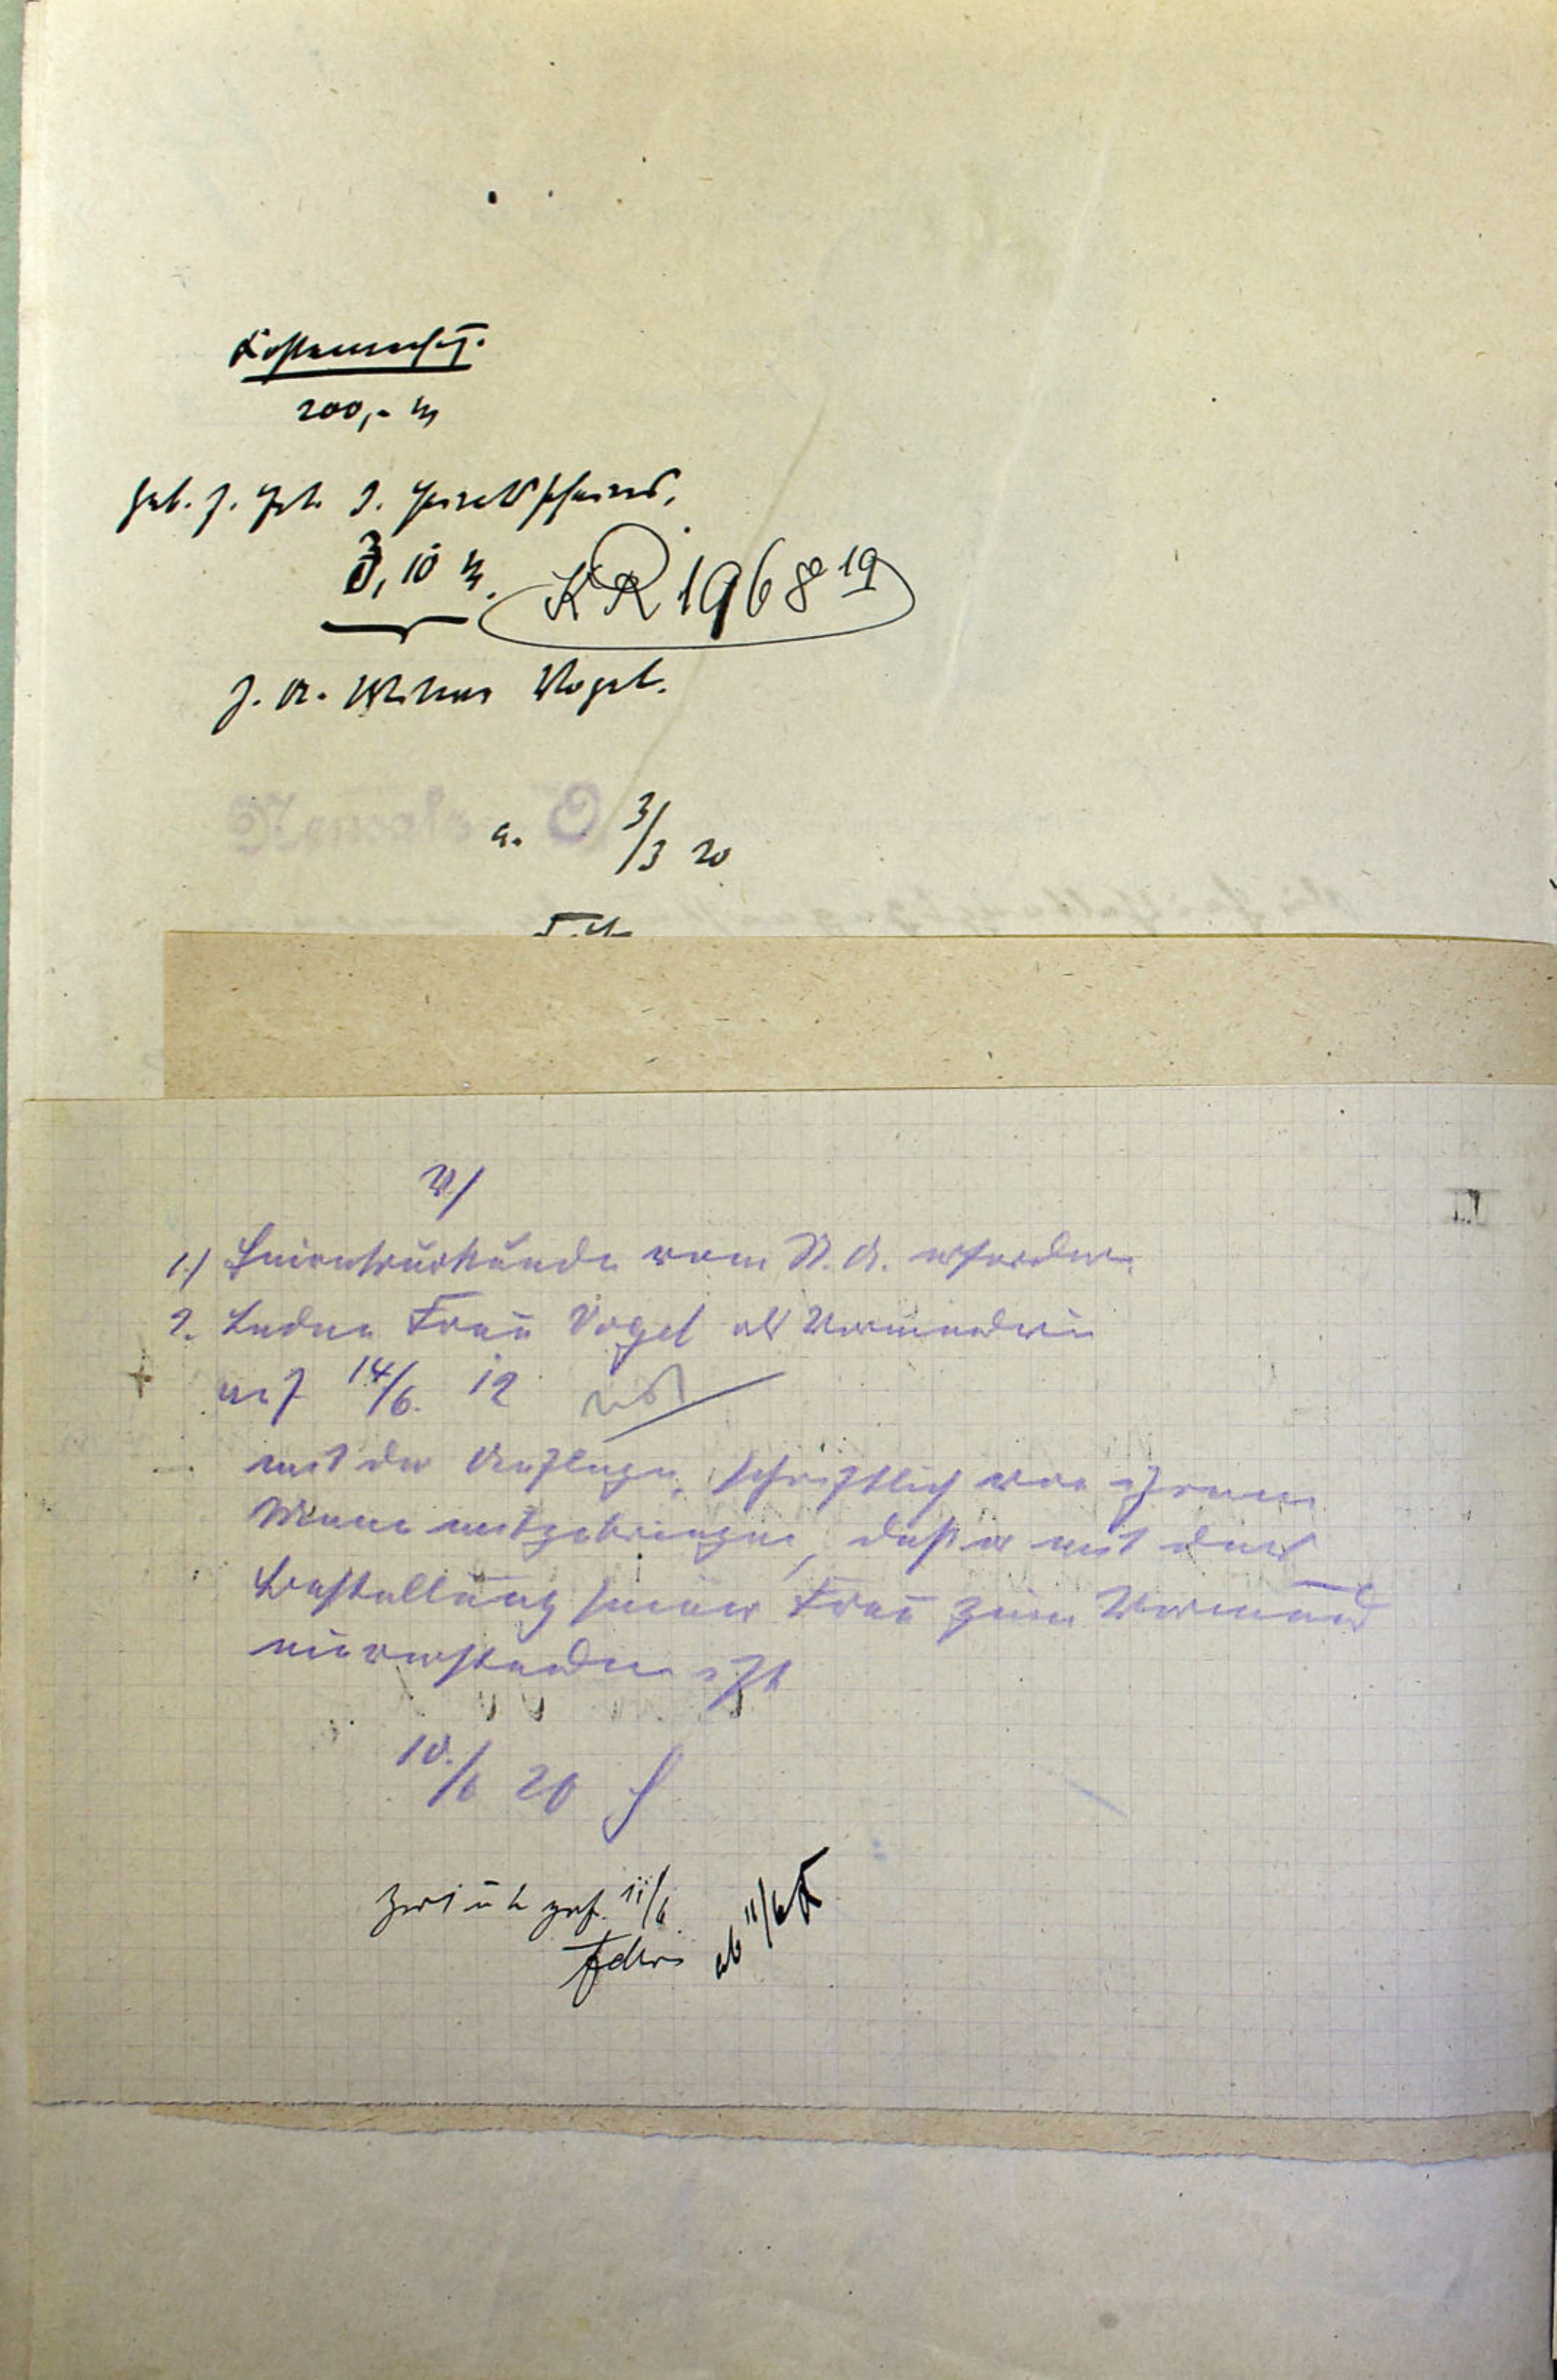 Kostenrechng.
200,- M
Geb. f. Ert. d. Erbscheins,
3,10 M.
KR 1968 19
Vogel.
a. 3/3 20
V/
1.) Heiratsurkunde vom St. A. erfordern.
2. Laden Frau Vogel als Vormünderin
auf 14/6. 12
mit der Auflage, schriftlich von ihrem
Mann mitzubringen, daß er mit der
Bestallung seiner Frau zum Vormund
einverstanden ist
10./6 20
zurück gef. 11/6
ab 11/6